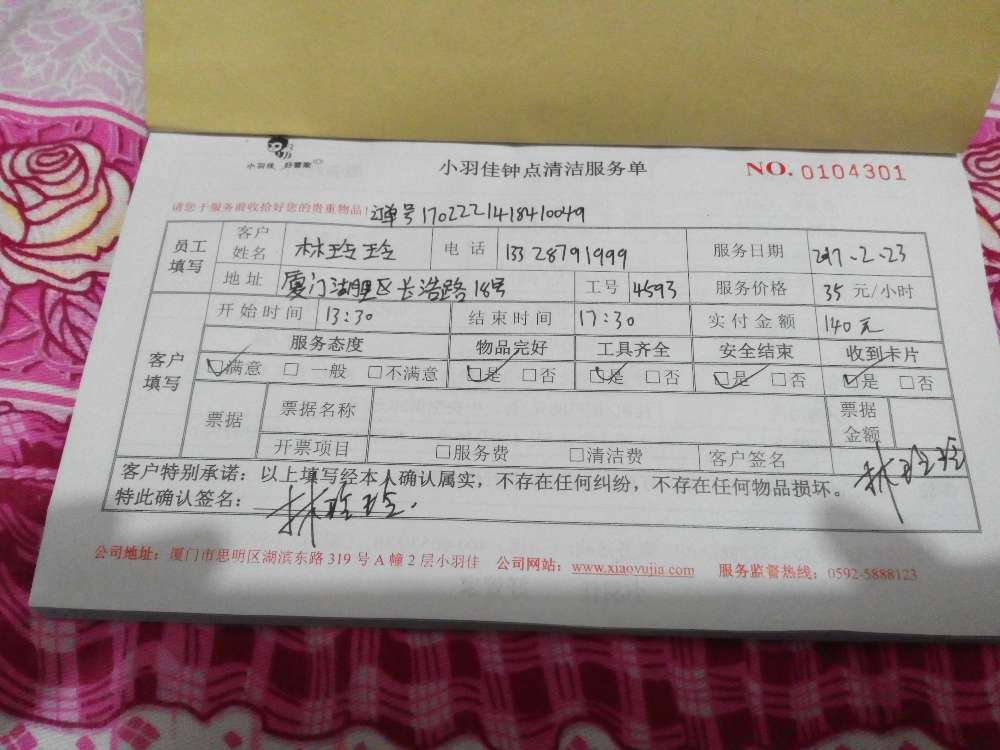 小羽佳 好管家
小羽佳钟点清洁服务单
NO. 0104301
请您于服务前收拾好您的贵重物品! 订单号1702221418410049
员工填写 客户姓名 林玲玲 电话 13328791999 服务日期 2017.2.23
地址 厦门湖里区长浩路18号 工号 4593 服务价格 35元/小时
客户填写 开始时间 13:30 结束时间 17:30 实付金额 140元
服务态度 物品完好 工具齐全 安全结束 收到卡片
☑满意 □一般 □不满意 ☑是 □否 ☑是 □否 ☑是 □否 ☑是 □否
票据 票据名称 票据金额
开票项目 □服务费 □清洁费 客户签名 林玲玲
客户特别承诺：以上填写经本人确认属实，不存在任何纠纷，不存在任何物品损坏。
特此确认签名：林玲玲.
公司地址：厦门市思明区湖滨东路319号A幢2层小羽佳 公司网站：www.xiaoyujia.com 服务监督热线：0592-5888123